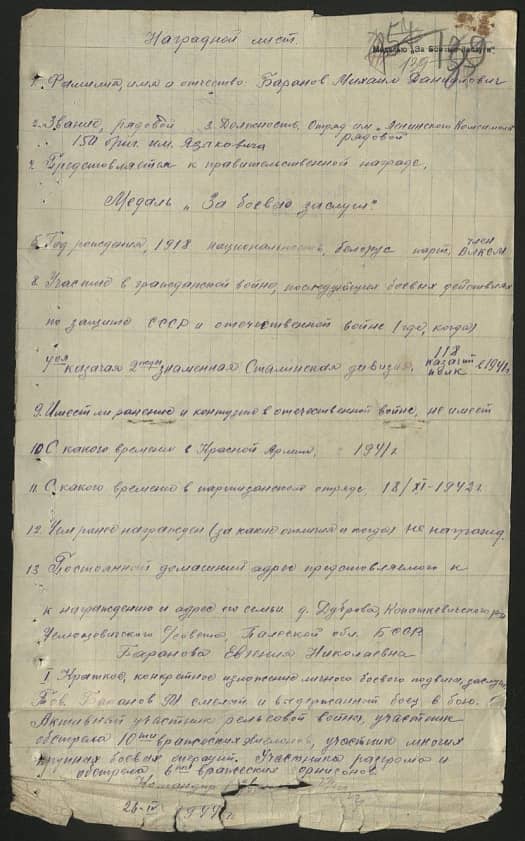 Наградной лист.
Медалью „За Боевые Заслуги"
54
139
1. Фамилия, имя и отчество: Баранов Михаил Данилович
2. Звание, рядовой 3. Должность, Отряд им. Ленинского Комсомола
150 бриг. им. Языковича рядовой
4. Представляется к правительственной награде,
Медаль „За боевые заслуги"
5. Год рождения, 1918 национальность, белорус парт. член ВЛКСМ
8. Участие в гражданской войне, последующих боевых действиях
по защите СССР и отечественной войне (где, когда)
казачая знаменная Сталинская дивизия, 118 казачий полк в 1941 г.
9. Имеет ли ранение и контузию в отечественной войне, не имеет
10. С какого времени в Красной Армии, 1941 г
11. С какого времени в партизанском отряде, 18/XI-1942 г.
12. Чем ранее награжден (за какие отличия и когда) не награжд.
13. Постоянный домашний адрес представляемого к
к награждению и адрес его семьи д. Дуброва, Копаткевичского р-на
с/совета, Полеской обл. БССР
Баранова Евгения Николаевна
I Краткое, конкретное изложение личного боевого подвига, заслуг
Тов. Баранов М смелый и выдержанный боец в бою.
Активный участник рельсовой войны, участник
обстрела 10ти вражеских эшелонов, участник многих
крупных боевых операций. Участника разгрома и
обстрела вражеских гарнизонов
Командир
26-IV 1944 г.